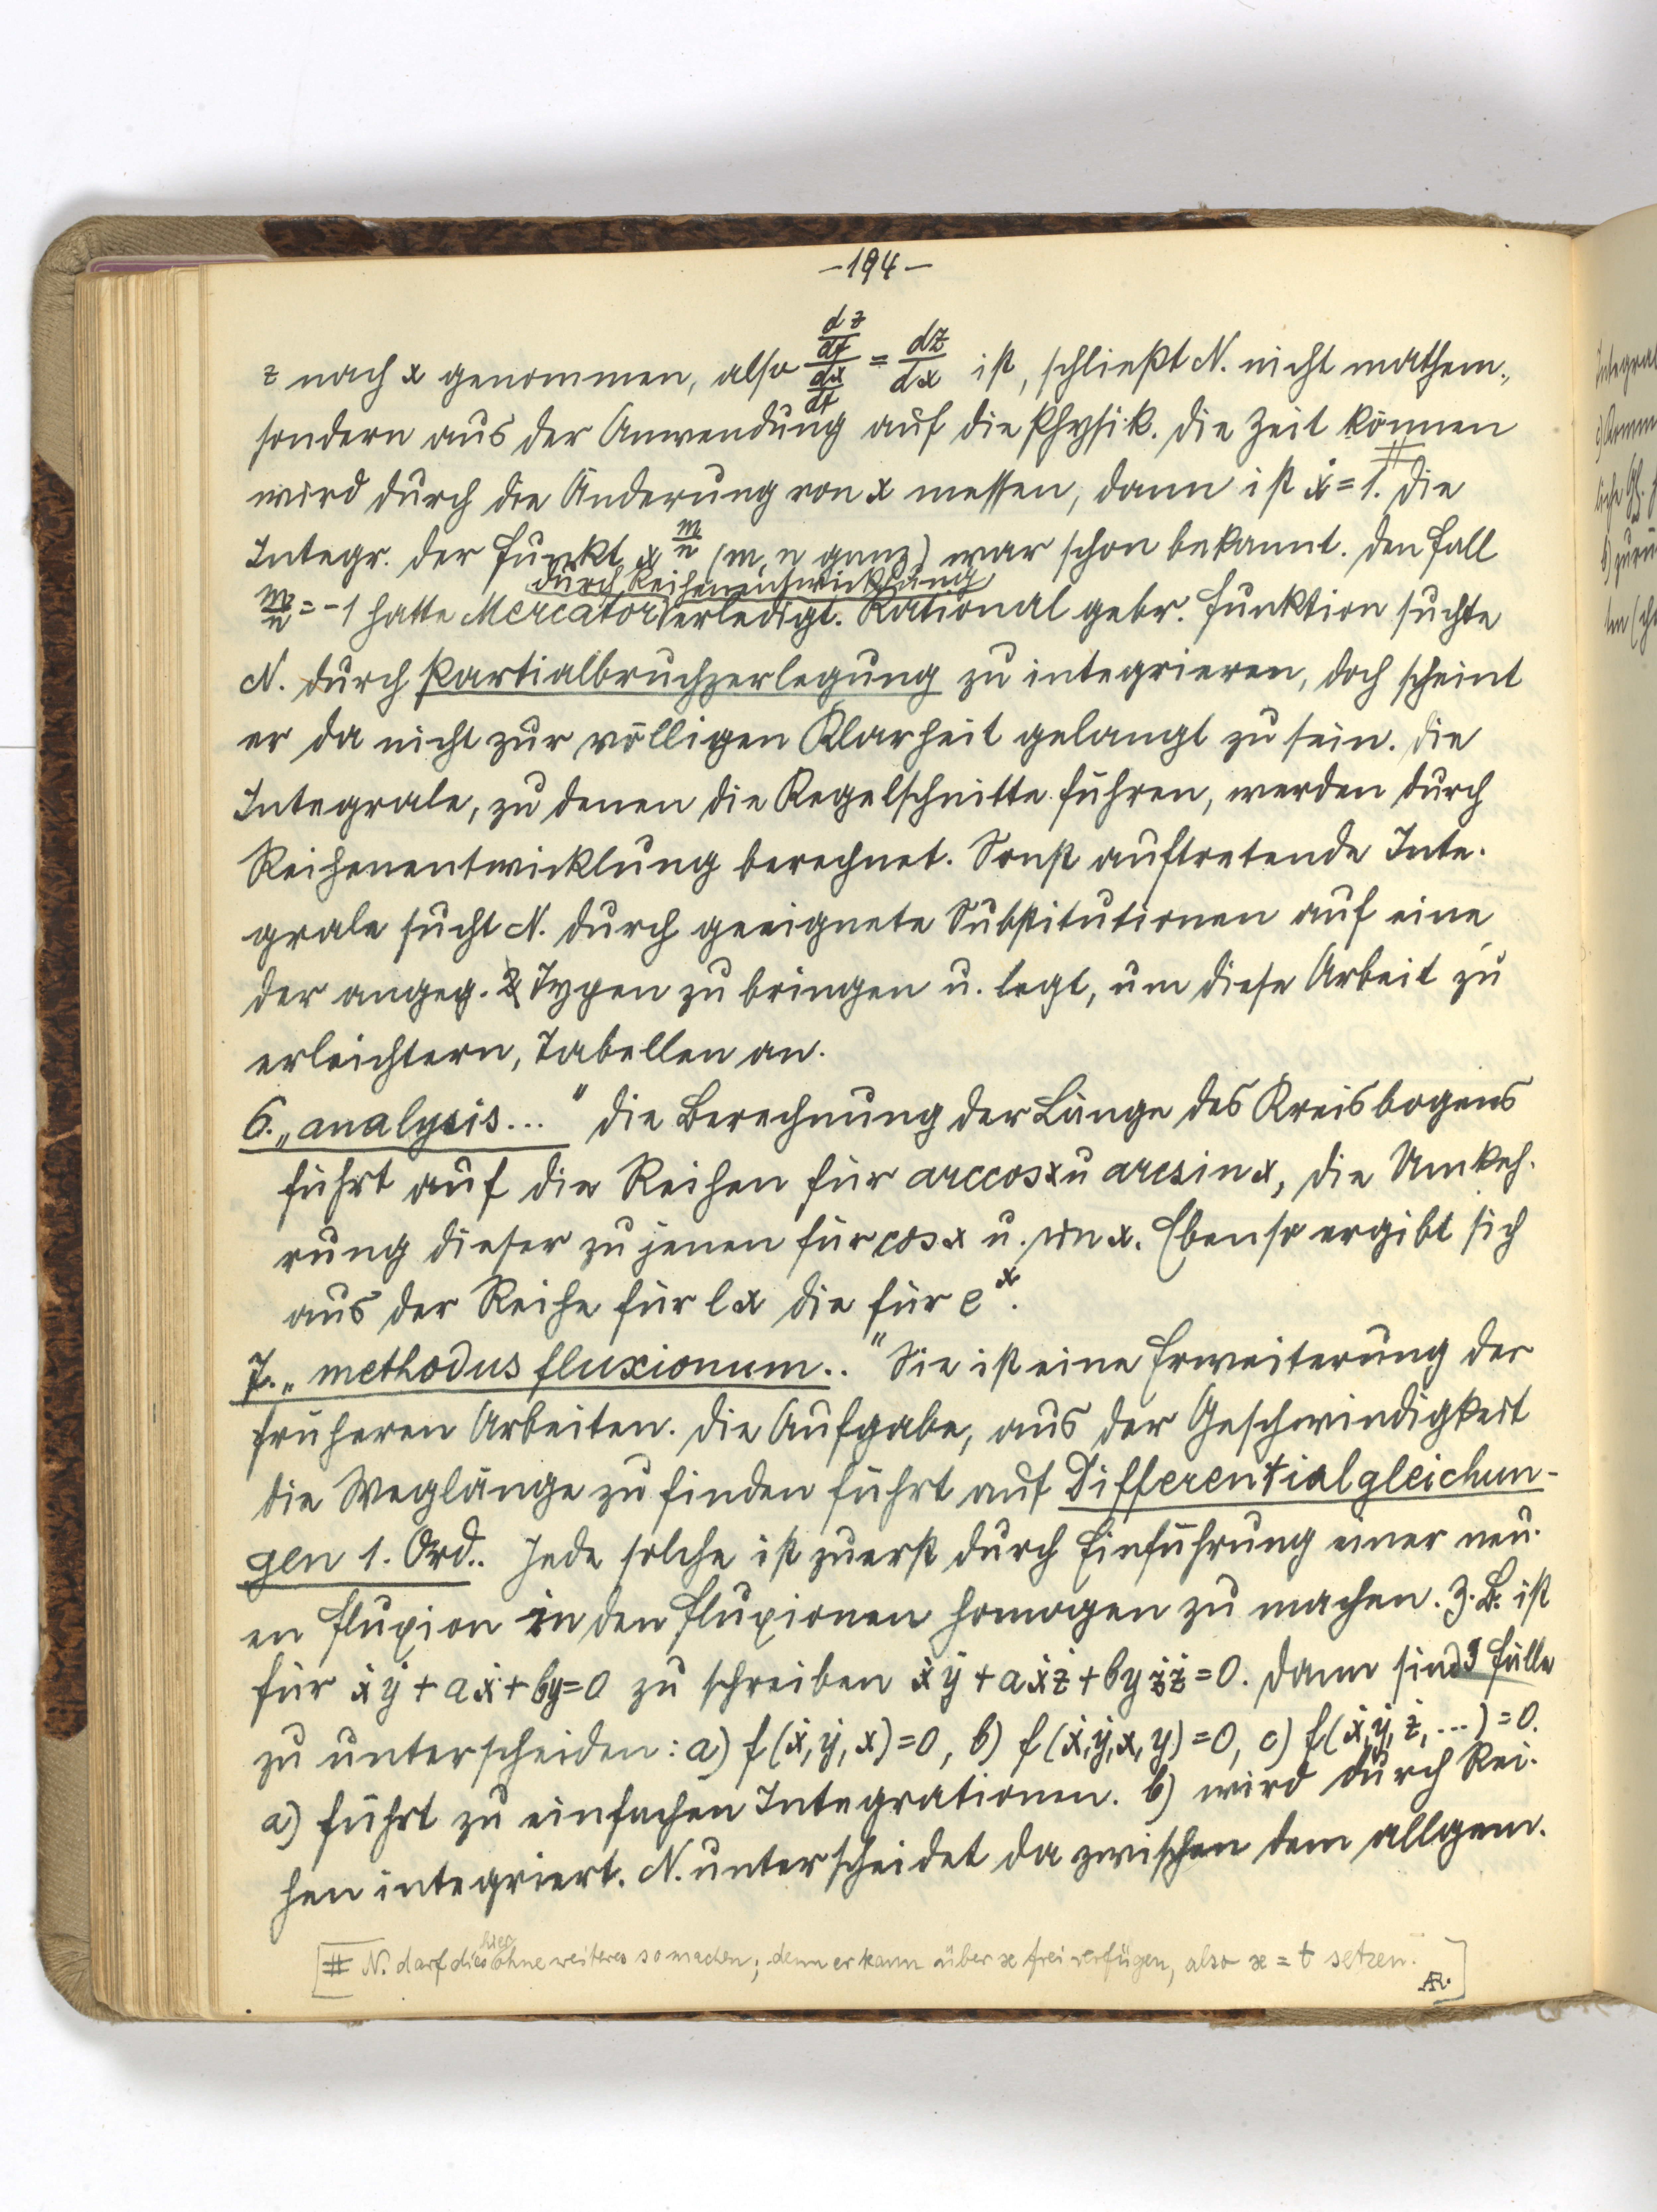 -194-
z nach x genommen, also (dz/dt)/(dx/dt) = dz/dx ist, schließt N. nicht mathem.,
sondern aus der Anwendung auf die Physik. Die Zeit können
wird durch die Änderung von x messen, dann ist ẋ=1.# Die
Integr. der Funkt. x^(m/n) (m, n ganz) war schon bekannt. Den Fall
durch Reihenentwicklung
m/n = -1 hatte Mercator erledigt. Rational gebr. Funktion suchte
N. durch Partialbruchzerlegung zu integrieren, doch scheint
er da nicht zur völligen Klarheit gelangt zu sein. Die
Integrale, zu denen die Kegelschnitte führen, werden durch
Reihenentwicklung berechnet. Sonst auftretende Inte-
grale sucht N. durch geeignete Substitutionen auf eine
der angeg. 2 Typen zu bringen u. legt, um diese Arbeit zu
erleichtern, Tabellen an.
6. „analysis..." Die Berechnung der Länge des Kreisbogens
führt auf die Reihen für arccos x u arcsin x, die Umkeh-
rung dieser zu jenen für cos x u. sin x. Ebenso ergibt sich
aus der Reihe für l x die für e^x.
7. „methodus fluxionum.." Sie ist eine Erweiterung der
früheren Arbeiten. Die Aufgabe, aus der Geschwindigkeit
die Weglänge zu finden führt auf Differentialgleichun-
gen 1. Ord.. Jede solche ist zuerst durch Einführung einer neu-
en Fluxion in den Fluxionen homogen zu machen. Z.B. ist
für ẋẏ + aẋ + by = 0 zu schreiben ẋẏ + aẋż + byżż = 0. Dann sind 3 Fälle
zu unterscheiden: a) f(ẋ, ẏ, x)=0, b) f(ẋ, ẏ, x, y)=0, c) f(ẋ, ẏ, ż, ...)=0.
a) führt zu einfachen Integrationen. b) wird durch Rei-
hen integriert. N. unterscheidet da zwischen dem allgem.
[# N. darf dies hier ohne weiteres so machen; denn er kann über x frei verfügen, also x = t setzen.
AR.]